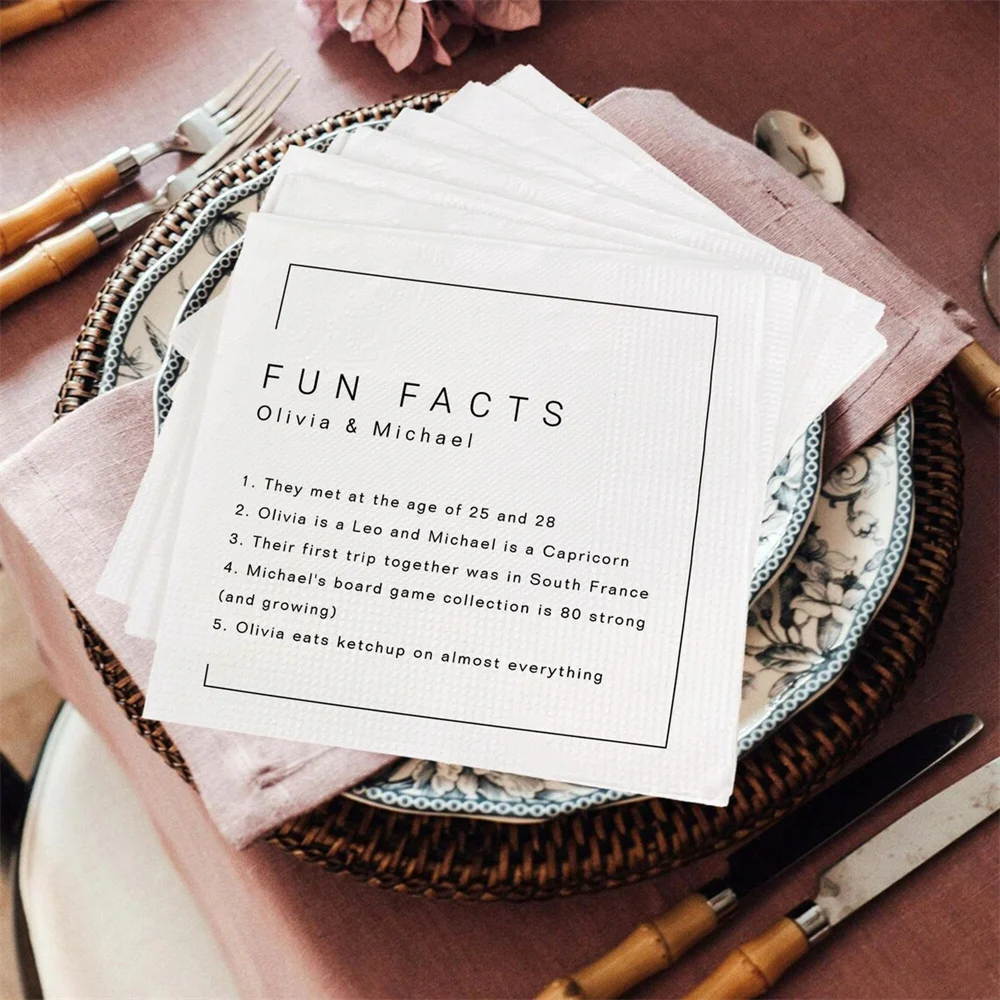 FUN FACTS
Olivia & Michael
1. They met at the age of 25 and 28
2. Olivia is a Leo and Michael is a Capricorn
3. Their first trip together was in South France
4. Michael's board game collection is 80 strong
(and growing)
5. Olivia eats ketchup on almost everything